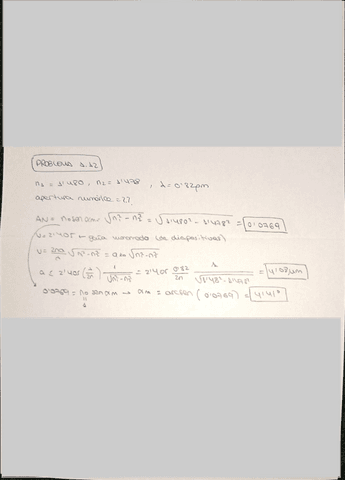 PROBLEMA 1.12
n1 = 1'480, n2 = 1'478, λ = 0'82μm
apertura numérica = ??
AN = n0 sin αm = √n1² - n2² = √1'480² - 1'478² = 0'0769
V = 2'405 ← guía monomodo (de diapositivas)
V = 2πa/λ √n1² - n2² = a k0 √n1² - n2²
a ≤ 2'405 (λ/2π) 1/√n1² - n2² = 2'405 0'82/2π 1/√1'48² - 1'478² = 4'08μm
0'0769 = n0 sen αm → αm = arcsen (0'0769) = 4'41°
1